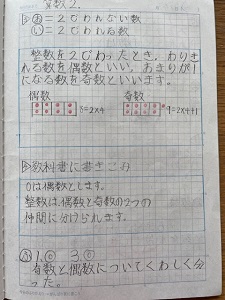 算数2.
あ=2でわれない数
い=2でわれる数
整数を2でわったとき、わりき
れる数を偶数といい、あまりが1
になる数を奇数といいます。
偶数 奇数
8=2×4 9=2×4+1
教科書に書きこみ
0は偶数とします。
整数は、偶数と奇数の2つの
仲間に分けられます。
ふ 1.◎ 3.◎
奇数と偶数についてくわしく分
った。